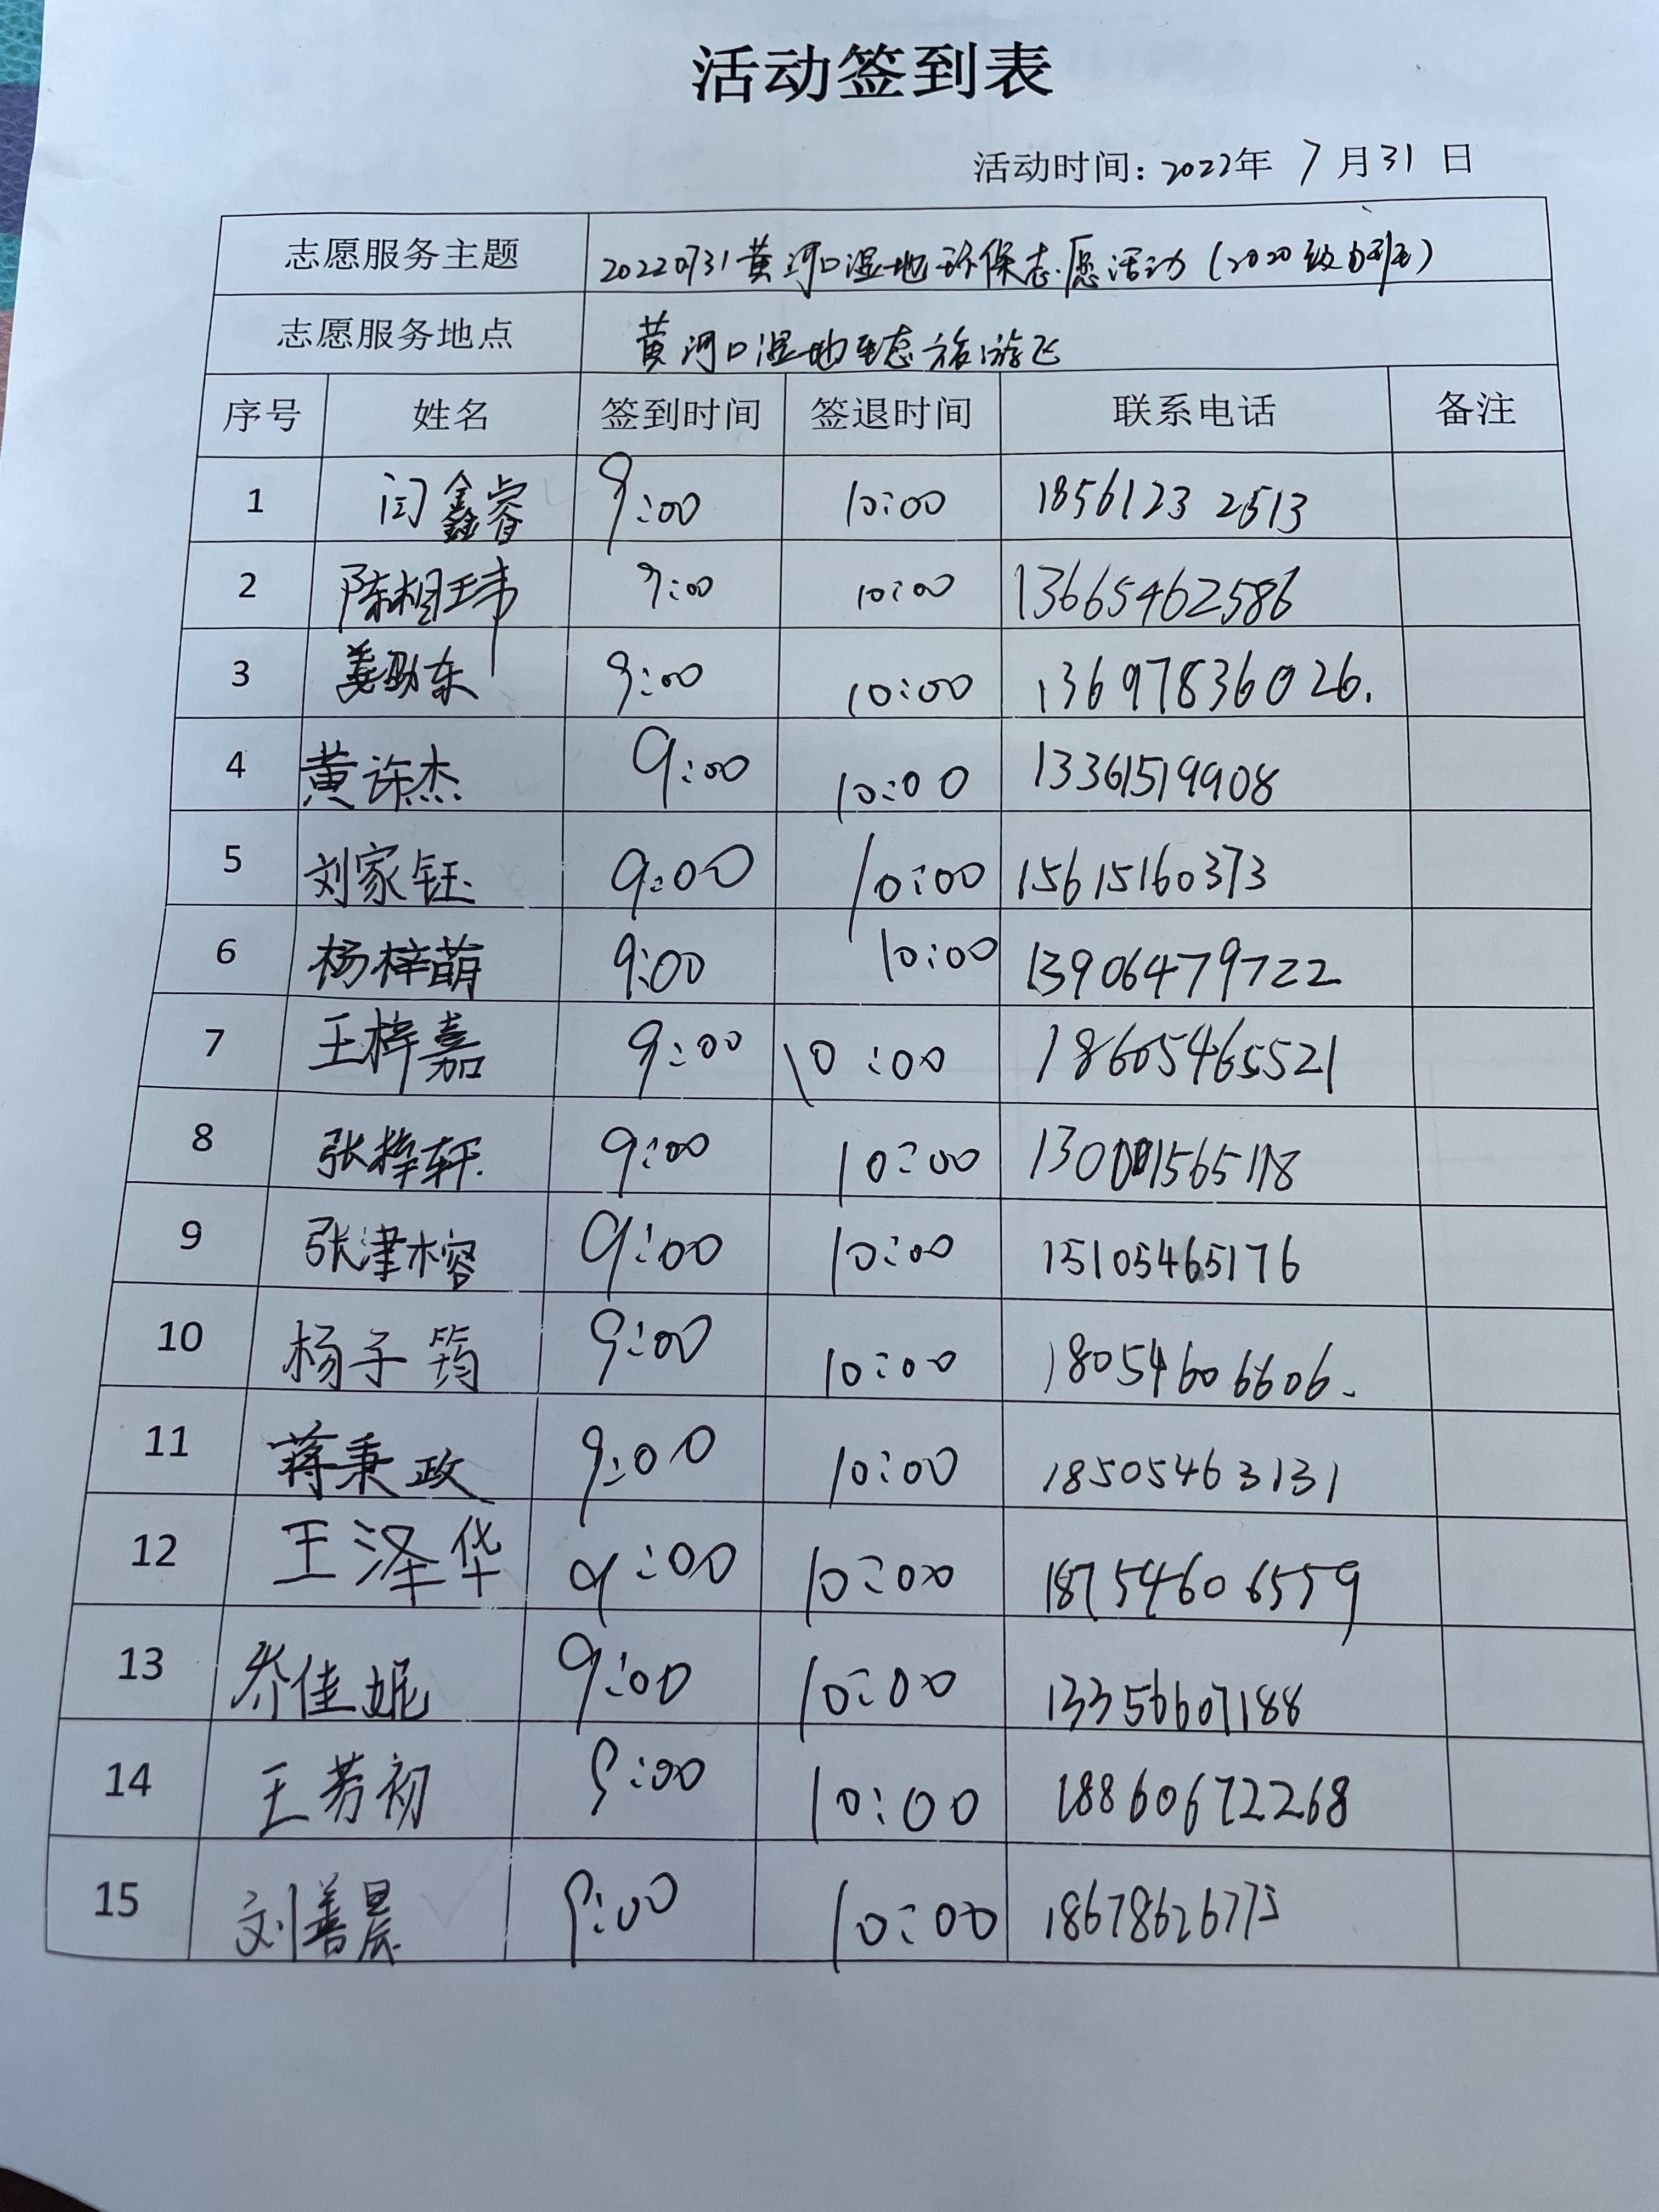 活动签到表
活动时间：2022年 7月31日
志愿服务主题 20220731黄河口湿地环保志愿活动（2020级
志愿服务地点 黄河口湿地生态旅游区
序号 姓名 签到时间 签退时间 联系电话 备注
1 闫鑫睿 9:00 10:00 18561232513
2 陈相玮 9:00 10:00 13665462586
3 姜勋东 9:00 10:00 13697836026.
4 黄许杰 9:00 10:00 13361519908
5 刘家钰 9:00 10:00 15615160373
6 杨梓萌 9:00 10:00 13906479722
7 王梓嘉 9:00 10:00 18605465521
8 张梓轩 9:00 10:00
9 张津榕 9:00 10:00 15105465176
10 杨子筠 9:00 10:00 18054606606.
11 蒋秉政 9:00 10:00 18505463131
12 王泽华 9:00 10:00 18754606559
13 乔佳妮 9:00 10:00 13356607188
14 王芳初 9:00 10:00 18860672268
15 刘善晨 9:00 10:00 18678626775